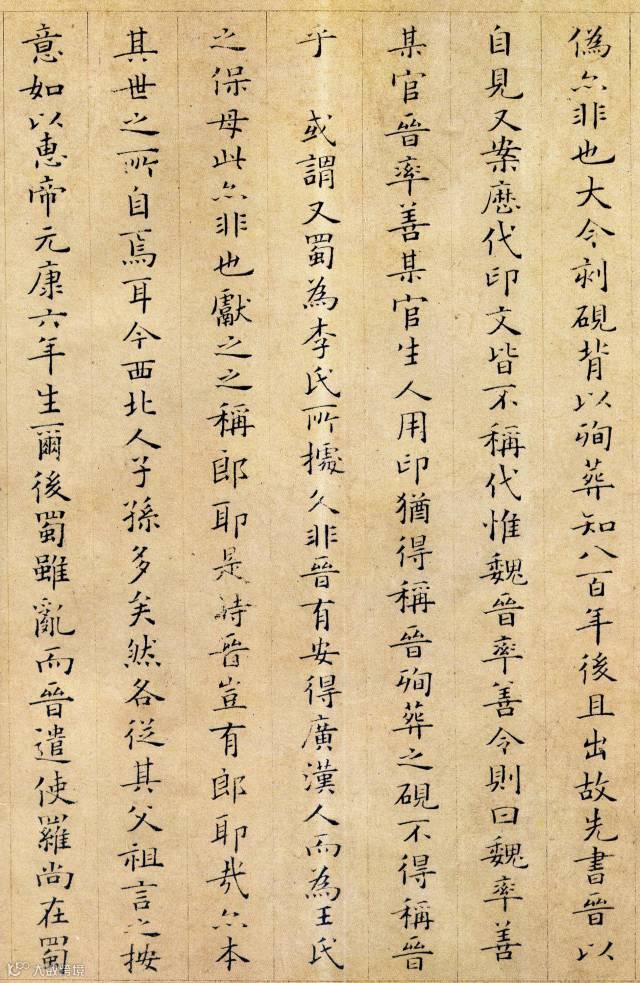 偽尒非也大令剡硯背以殉葬知八百年後且出故先書晉以
自見又案歷代印文皆不稱代惟魏晉率善令則曰魏率善
某官晉率善某官生人用印猶得稱晉殉葬之硯不得稱晉
乎 或謂又蜀為李氏所據久非晉有安得廣漢人而為王氏
之保母此尒非也獻之之稱郎耶是時晉豈有郎耶哉尒本
其世之所自焉耳今西北人子孫多矣然各從其父祖言之按
意如以惠帝元康六年生爾後蜀雖亂而晉遣使羅尚在蜀
大政跨境